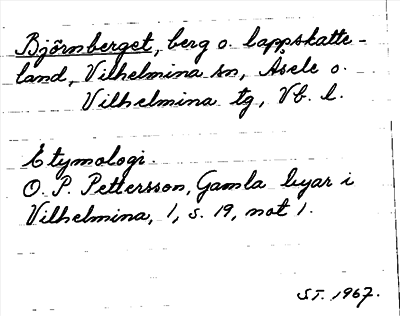 Björnberget, berg o. lappskatte-
land, Vilhelmina sn, Åsele o.
Vilhelmina tg, Vb. l.
Etymologi.
O. P. Pettersson, Gamla byar i
Vilhelmina, 1, s. 19, not 1.
ST. 1967.